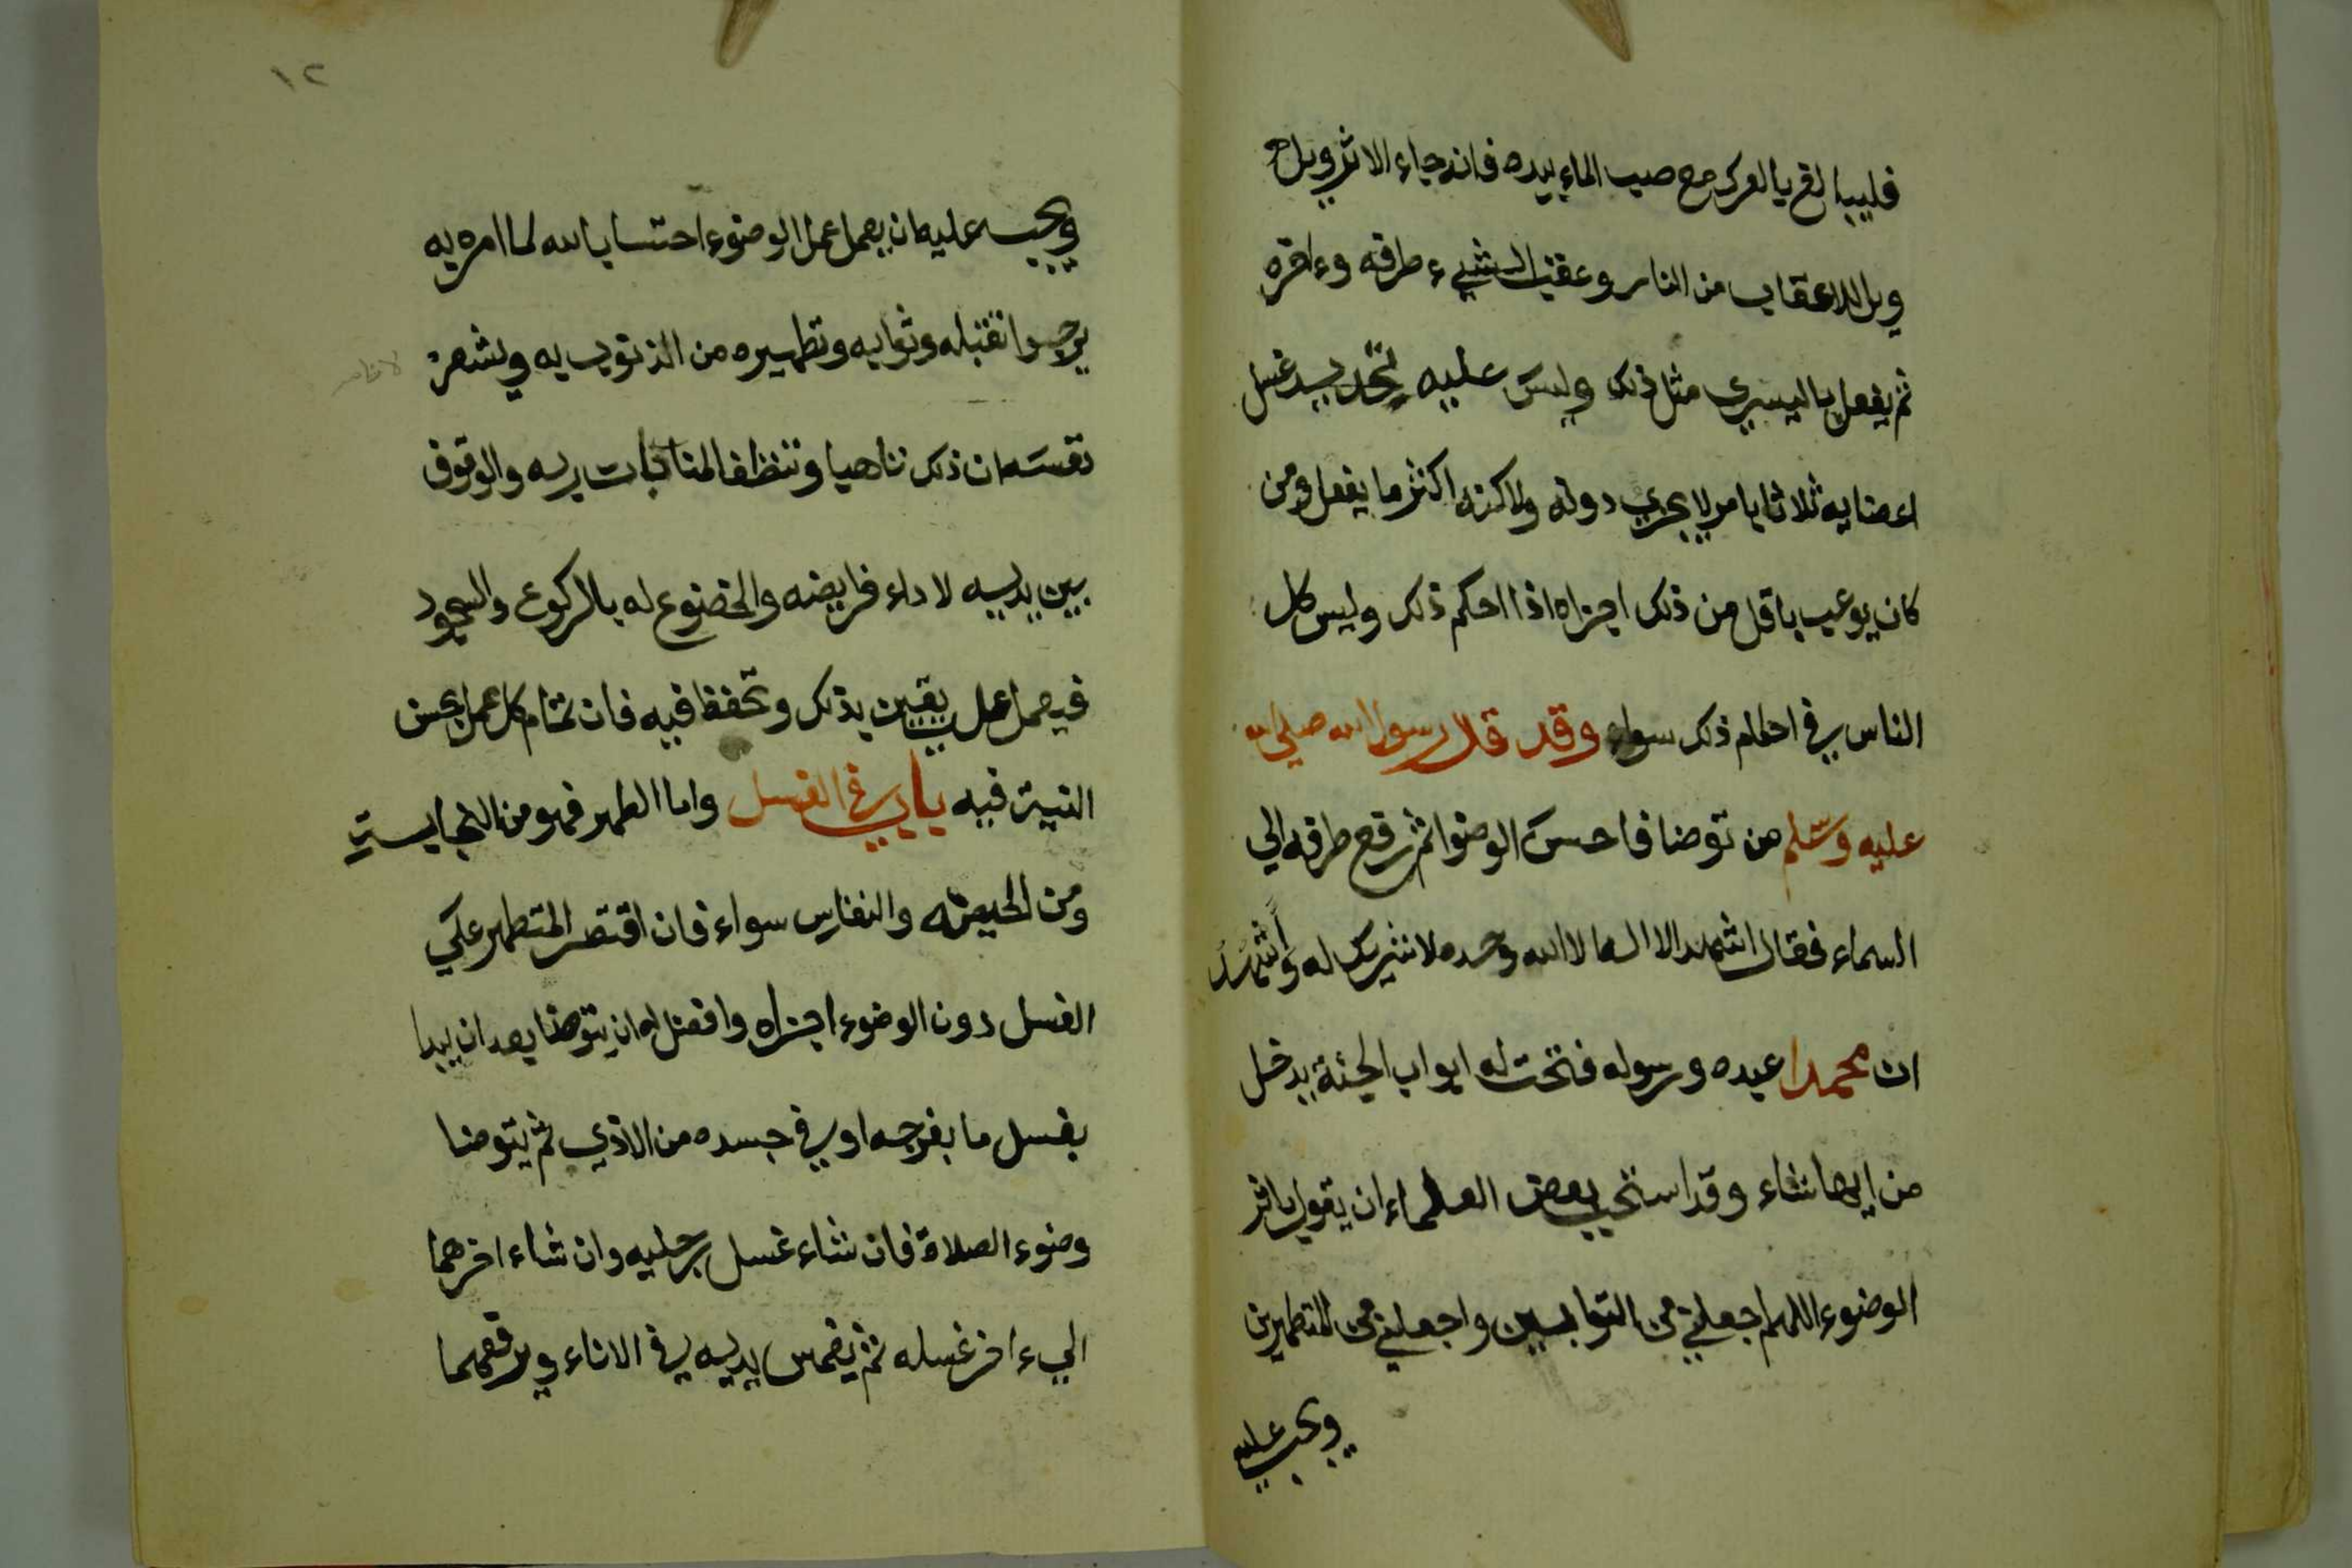 فليبالغ بالعرك مع صب الماء بيده فانه جاء الاثر ويل
ويل للاعقاب من النار وعقب الشيء طرفه وءاخره
ثم يفعل باليسرى مثل ذلك وليس عليه تحديد غسل
اعضايه ثلاثا بامر لا يجزي دونه ولاكنه اكثر ما يفعل ومن
كان يوعب باقل من ذلك اجزاه اذا احكم ذلك وليس كل
الناس في احكام ذلك سواء وقد قال رسول الله صلى الله
عليه وسلم من توضا فاحسن الوضوا ثم رفع طرفه الي
السماء فقال اشهد الا اله الا الله وحده لا شريك له وأشهد
ان محمدا عبده ورسوله فتحت له ابواب الجنة يدخل
من ايها شاء وقد استحب بعض العلماء ان يقول باثر
الوضوء اللهم اجعلني من التوابين واجعلني من المتطهرين
ويجب عليه
١٢
ويجب عليه ان يعمل عمل الوضوء احتسابا لله لما امره به
يرجوا تقبله وثوابه وتطهيره من الذنوب به ويشعر
نفسه ان ذلك تاهبا وتنظفا لمناجات ربه والوقوف
بين يديه لاداء فرايضه والخضوع له بالركوع والسجود
فيعمل على يقين بذلك وتحفظ فيه فان تمام كل عمل بحسن
النية فيه باب في الغسل واما الطهر فهو من الجنابة
ومن الحيضة والنفاس سواء فان اقتصر المتطهر على
الغسل دون الوضوء اجزاه وافضل له ان يتوضا بعد ان يبدا
بغسل ما بفرجه او في جسده من الاذي ثم يتوضا
وضوء الصلاة فان شاء غسل رجليه وان شاء اخرهما
الىء اخر غسله ثم يغمس يديه في الاناء ويرفعهما